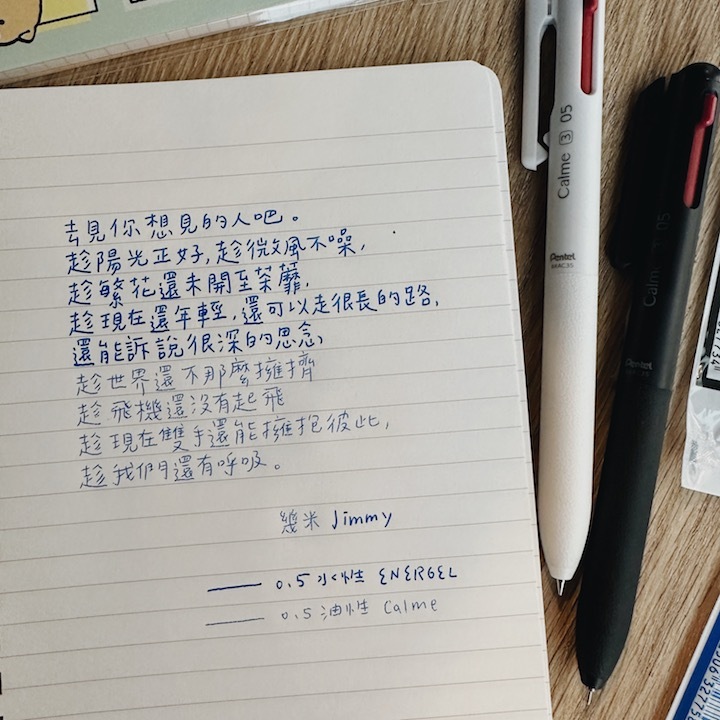 去見你想見的人吧。
趁陽光正好,趁微風不噪,
趁繁花還未開至荼靡,
趁現在還年輕,還可以走很長的路,
還能訴說很深的思念
趁世界還不那麼擁擠
趁飛機還沒有起飛
趁現在雙手還能擁抱彼此,
趁我們還有呼吸。
幾米 Jimmy
0.5 水性 ENERGEL
0.5 油性 Calme
Calme 3 05
Pentel
Calme 3 05
Pentel